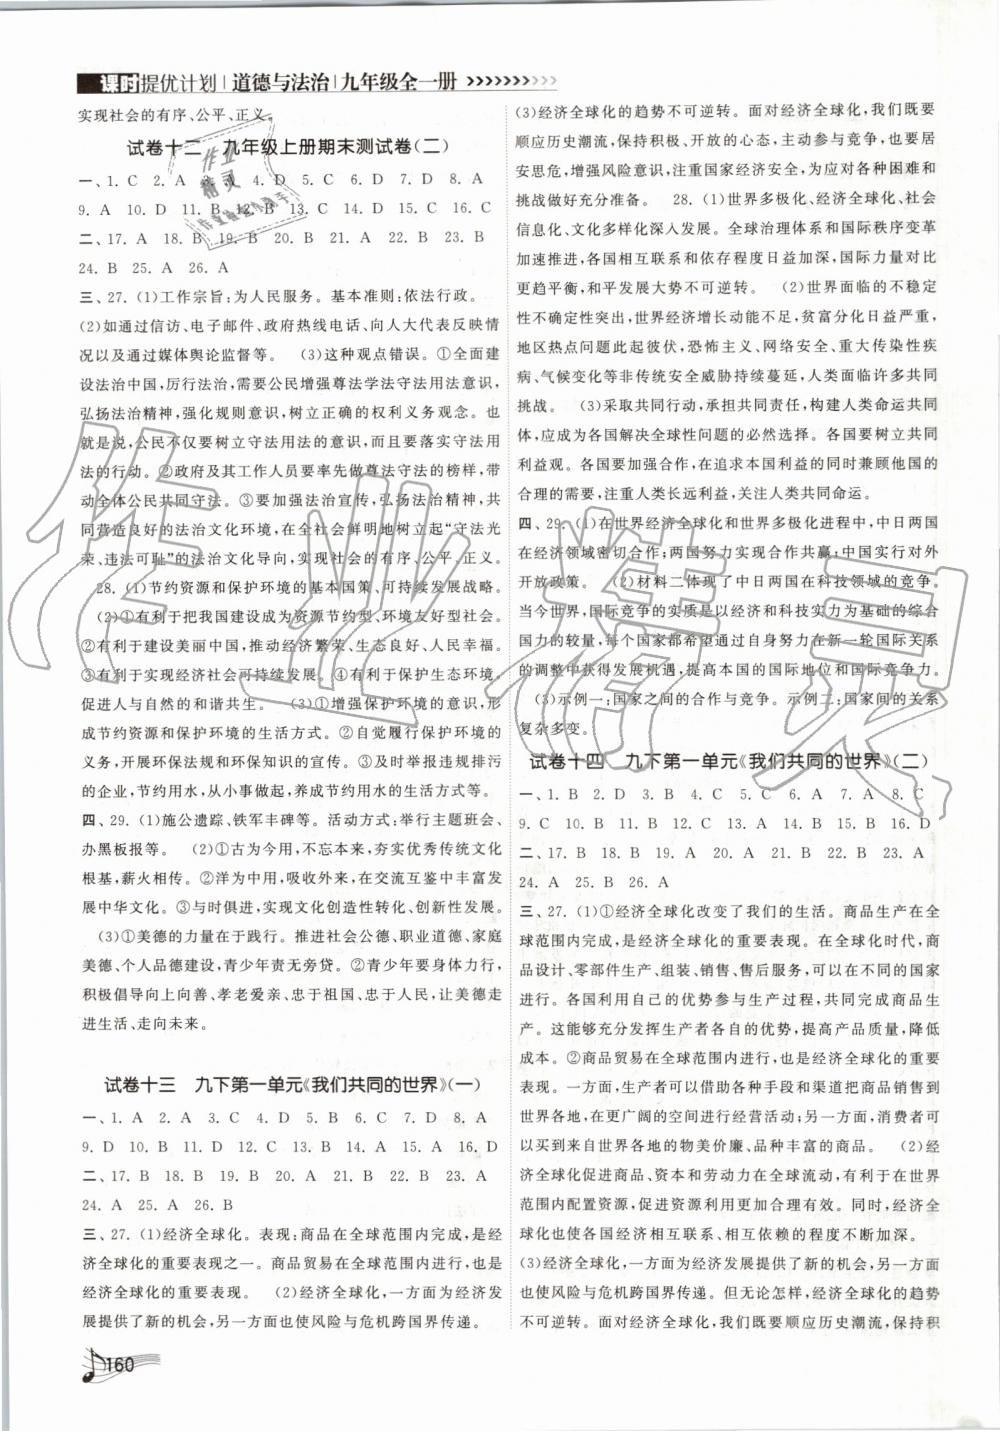 课时提优计划 道德与法治 九年级全一册
实现社会的有序、公平、正义。
试卷十二 九年级上册期末测试卷(二)
一、1. C 2. A 3. A 4. D 5. C 6. D 7. D 8. A
9. A 10. D 11. B 12. B 13. C 14. D 15. C 16. C
二、17. A 18. B 19. B 20. B 21. A 22. B 23. B
24. B 25. A 26. A
三、27. (1)工作宗旨:为人民服务。基本准则:依法行政。
(2)如通过信访、电子邮件、政府热线电话、向人大代表反映情
况以及通过媒体舆论监督等。 (3)这种观点错误。①全面建
设法治中国,厉行法治,需要公民增强尊法学法守法用法意识,
弘扬法治精神,强化规则意识,树立正确的权利义务观念。也
就是说,公民不仅要树立守法用法的意识,而且要落实守法用
法的行动。②政府及其工作人员要率先做尊法守法的榜样,带
动全体公民共同守法。③要加强法治宣传,弘扬法治精神,共
同营造良好的法治文化环境,在全社会鲜明地树立起“守法光
荣、违法可耻”的法治文化导向,实现社会的有序、公平、正义。
28. (1)节约资源和保护环境的基本国策、可持续发展战略。
(2)①有利于把我国建设成为资源节约型、环境友好型社会。
②有利于建设美丽中国,实现经济繁荣、生态良好、人民幸福。
③有利于实现经济社会可持续发展。④有利于保护生态环境,
促进人与自然的和谐共生。 (3)①增强保护环境的意识,形
成节约资源和保护环境的生活方式。②自觉履行保护环境义务,
开展环保法规和环保知识的宣传。③及时举报违规排污
的企业。④节约用水,从小事做起,养成节约用水的生活方式等。
四、29. (1)施公遗踪、铁军丰碑等。活动方式:举行主题班会、
办黑板报等。 (2)①古为今用,不忘本来,夯实优秀传统文化
根基,薪火相传。②洋为中用,吸收外来,在交流互鉴中丰富发
展中华文化。③与时俱进,实现文化创造性转化、创新性发展。
(3)①美德的力量在于践行。推进社会公德、职业道德、家庭
美德、个人品德建设,青少年责无旁贷。②青少年要身体力行,
积极倡导向上向善、孝老爱亲、忠于祖国、忠于人民,让美德走
进生活、走向未来。
试卷十三 九下第一单元《我们共同的世界》(一)
一、1. A 2. A 3. C 4. D 5. C 6. B 7. D 8. A
9. D 10. B 11. D 12. C 13. B 14. A 15. A 16. D
二、17. B 18. A 19. B 20. B 21. A 22. B 23. A
24. A 25. A 26. B
三、27. (1)经济全球化。表现:商品在全球范围内完成,是经
济全球化的重要表现之一。商品贸易在全球范围内进行,也是
经济全球化的重要表现。 (2)经济全球化,一方面为经济发
展提供了新的机会,另一方面也使风险与危机跨国界传递。
160
(3)经济全球化的趋势不可逆转。面对经济全球化,我们既要
顺应历史潮流,保持积极、开放的心态,主动参与竞争,也要居
安思危,增强风险意识,注重国家经济安全,为应对各种困难和
挑战做好充分准备。 28. (1)世界多极化、经济全球化、社会
信息化、文化多样化深入发展。全球治理体系和国际秩序变革
加速推进,各国相互联系和依存程度日益加深,国际力量对比
更趋平衡,和平发展大势不可逆转。 (2)世界面临的不稳定
性不确定性突出,世界经济增长动能不足,贫富分化日益严重,
地区热点问题此起彼伏,恐怖主义、网络安全、重大传染性疾
病、气候变化等非传统安全威胁持续蔓延,人类面临许多共同
挑战。 (3)采取共同行动,承担共同责任,构建人类命运共同
体,成为各国解决全球性问题的必然选择。各国要树立共同
利益观。各国要加强合作,在追求本国利益的同时兼顾他国的
合理的需要,注重人类长远利益,关注人类共同命运。
四、29. (1)在世界经济全球化和世界多极化进程中,中日两国
在经济领域密切合作;两国努力实现合作共赢;中国实行对外
开放政策。 (2)材料二体现了中日两国在科技领域的竞争。
当今世界,国际竞争的实质是以经济和科技实力为基础的综合
国力的较量,每个国家都希望通过自身努力在新一轮国际关系
的调整中获得发展机遇,提高本国的国际地位和国际竞争力。
(3)示例一:国家之间的合作与竞争。示例二:国家间的关系
复杂多变。
试卷十四 九下第一单元《我们共同的世界》(二)
一、1. B 2. D 3. B 4. C 5. B 6. A 7. A 8. C
9. C 10. B 11. B 12. C 13. A 14. A 15. B 16. D
二、17. B 18. B 19. B 20. A 21. A 22. B 23. A
24. A 25. B 26. A
三、27. (1)①经济全球化改变了我们的生活。商品生产在全
球范围内完成,是经济全球化的重要表现。在全球化时代,商
品设计、零部件生产、组装、销售、售后服务,可以在不同的国家
进行。各国利用自己的优势参与生产过程,共同完成商品生
产。这能够充分发挥生产者各自的优势,提高产品质量,降低
成本。②商品贸易在全球范围内进行,也是经济全球化的重要
表现。一方面,生产者可以借助各种手段和渠道把商品销售到
世界各地,在更广阔的空间进行经营活动;另一方面,消费者可
以买到来自世界各地的物美价廉、品种丰富的商品。 (2)经
济全球化促进商品、资本和劳动力在全球流动,有利于在世界
范围内配置资源,促进资源利用更加合理有效。同时,经济全
球化也使各国经济相互联系、相互依存的程度不断加深。
(3)经济全球化,一方面为经济发展提供了新的机会,另一方面
也使风险与危机跨国界传递。但无论怎样,经济全球化的趋势
不可逆转。面对经济全球化,我们既要顺应历史潮流,保持积
作业精灵